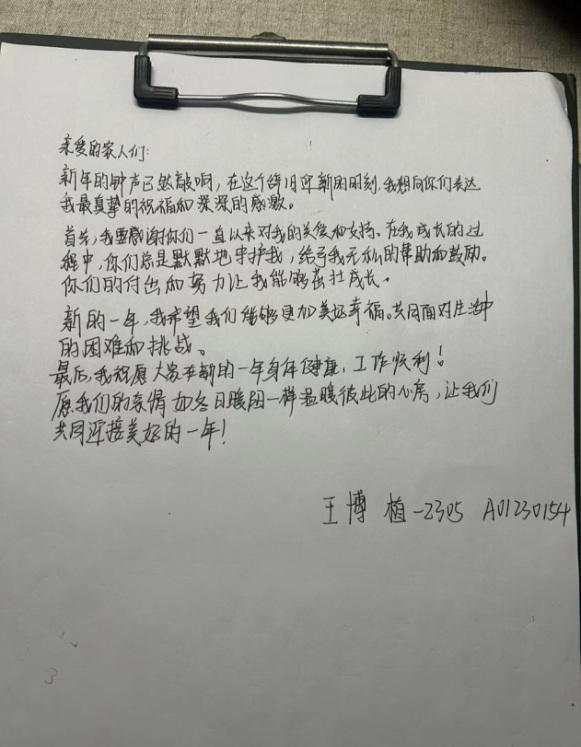 亲爱的家人们:
新年的钟声已然敲响，在这个辞旧迎新的时刻,我想向你们表达
我最真挚的祝福和深深的感激。
首先,我要感谢你们一直以来对我的关爱和支持。在我成长的过
程中,你们总是默默地守护我,给予我无私的帮助和鼓励。
你们的付出和努力让我能够茁壮成长。
新的一年,我希望我们能够更加美好幸福。共同面对生活中
的困难和挑战。
最后,我祝愿大家在新的一年身体健康,工作顺利！
愿我们的亲情如冬日暖阳一样温暖彼此的心房,让我们
共同迎接美好的一年！
王博 植-2305 A01230154
3